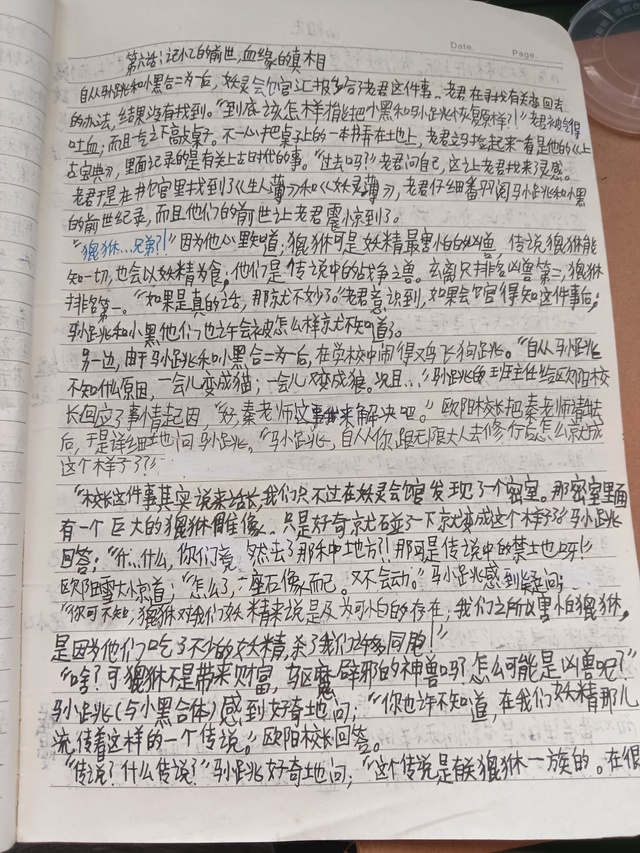 Date.          Page.
第六话:记忆的前世,血缘的真相
自从马小跳和小黑合二为一后,妖灵会馆汇报给了老君这件事,老君在寻找有关变回去
的办法,结果没有找到。“到底该怎样才能把小黑和马小跳恢复原样?!”老君被气得
吐血;而且气之下高敲桌子。不一小心把桌子上的一本书弄在土地上,老君立马捡起来一看是他的《上
古宝典》,里面记录的是有关上古时代的事。“过去吗?”老君问自己,这让老君找来了灵感。
老君于是在书馆里找到了《生人薄》和《妖灵薄》,老君仔细番阅马小跳和小黑
的前世纪录,而且他们的前世让老君震惊到了。
“貔貅…兄弟?!”因为他心里知道;貔貅可是妖精最害怕的凶兽,传说貔貅能
知一切,也会以妖精为食,他们是传说中的战争之兽。玄离只排名凶兽第二,貔貅
排名第一。“如果是真的话,那就不妙了。”老君意识到,如果会馆得知这件事后;
马小跳和小黑他们也许会被怎么样就不知道了。
另一边,由于马小跳和小黑合二为一后,在学校中闹得鸡飞狗跳。“自从马小跳
不知什么原因,一会儿变成猫;一会儿又变成狼。况且…”马小跳的班主任给欧阳校
长回应了事情起因,“好,秦老师这事我来解决吧。”欧阳校长把秦老师请走
后,于是详细地问马小跳,“马小跳,自从你跟无限大人去修行后怎么就成
这个样子了?!
“校长这件事其实说来话长,我们只不过在妖灵会馆发现了个密室。那密室里面
有一个巨大的貔貅雕像、只是好奇就碰了一下就变成这个样子了。”马小跳
回答:“什…什么,你们竟然去了那种地方?!那可是传说中的禁土也与!”
欧阳震大惊道;“怎么了,一座石像而已。又不会动。”马小跳感到疑问;
“你可不知,貔貅对我们妖精来说是及为可怕的存在;我们之所以害怕貔貅,
是因为他们吃了不少的妖精,杀了我们许多同胞!”
“啥?可貔貅不是带来财富,驱魔辟邪的神兽吗?怎么可能是凶兽呢?”
马小跳(与小黑合体)感到好奇地问;“你也许不知道,在我们妖精那儿
流传着这样的一个传说。”欧阳校长回答。
“传说?什么传说?”马小跳好奇地问;“这个传说是有关貔貅一族的。在很